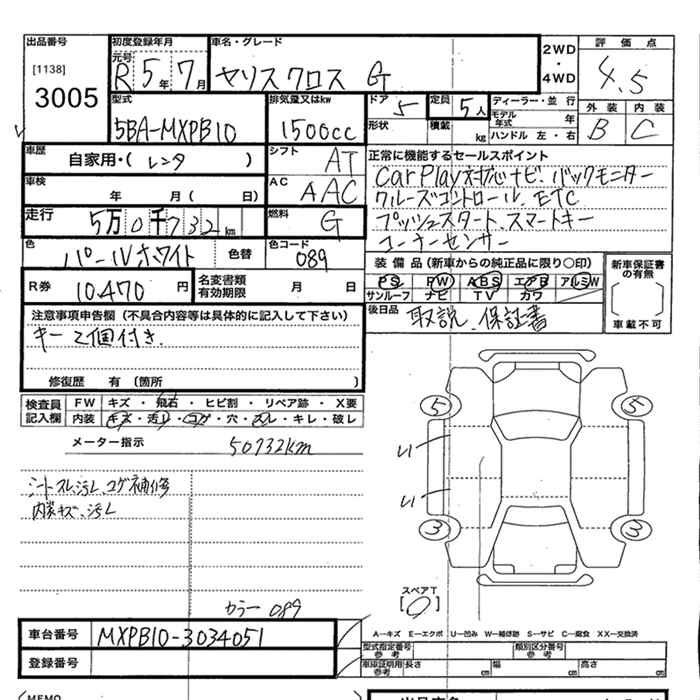 出品番号 初度登録年月 車名・グレード 2WD ・ 4WD 評価点
[1138] 3005 元号 R 5年 7月 ヤリスクロス G 4.5
型式 排気量又はkw ドア 5 定員 5人 ディーラー・並 行 外装 内装
5BA-MXPB10 1500cc 形状 積載 kg モデル年式 年 B C
ハンドル 左・右
車歴 自家用・(レンタ ) シフト AT 正常に機能するセールスポイント
車検 年 月 ( 日) AC AAC CarPlay対応ナビ、バックモニター
クルーズコントロール、ETC
走行 5万0千732km 燃料 G プッシュスタート、スマートキー
色 パールホワイト 色替 色コード 089 コーナーセンサー
R券 10,470円 名変書類有効期限 月 日 装備品(新車からの純正品に限り○印) 新車保証書の有無
PS PW ABS エアB アルミW
サンルーフ ナビ TV カワ
注意事項申告欄(不具合内容等は具体的に記入して下さい) 後日品 取説、保証書 車載不可
キー2個付き、
修復歴 有(箇所 )
検査員記入欄 FW キズ・飛石・ヒビ割・リペア跡・X要
内装 キズ・汚レ・コゲ・穴・スレ・キレ・破レ
メーター指示 50732km
シートスレ、汚レ、コゲ補修
内装キズ、汚レ
5 5
3 3
スペアT
[ ]
カラー 089
車台番号 MXPB10-3034051 A—キズ E—エクボ U—凹み W—補修跡 S—サビ C—腐食 XX—交換済
登録番号 型式指定番号参考 類別区分番号参考
車庫証明用参考 長さ cm 幅 cm 高さ cm